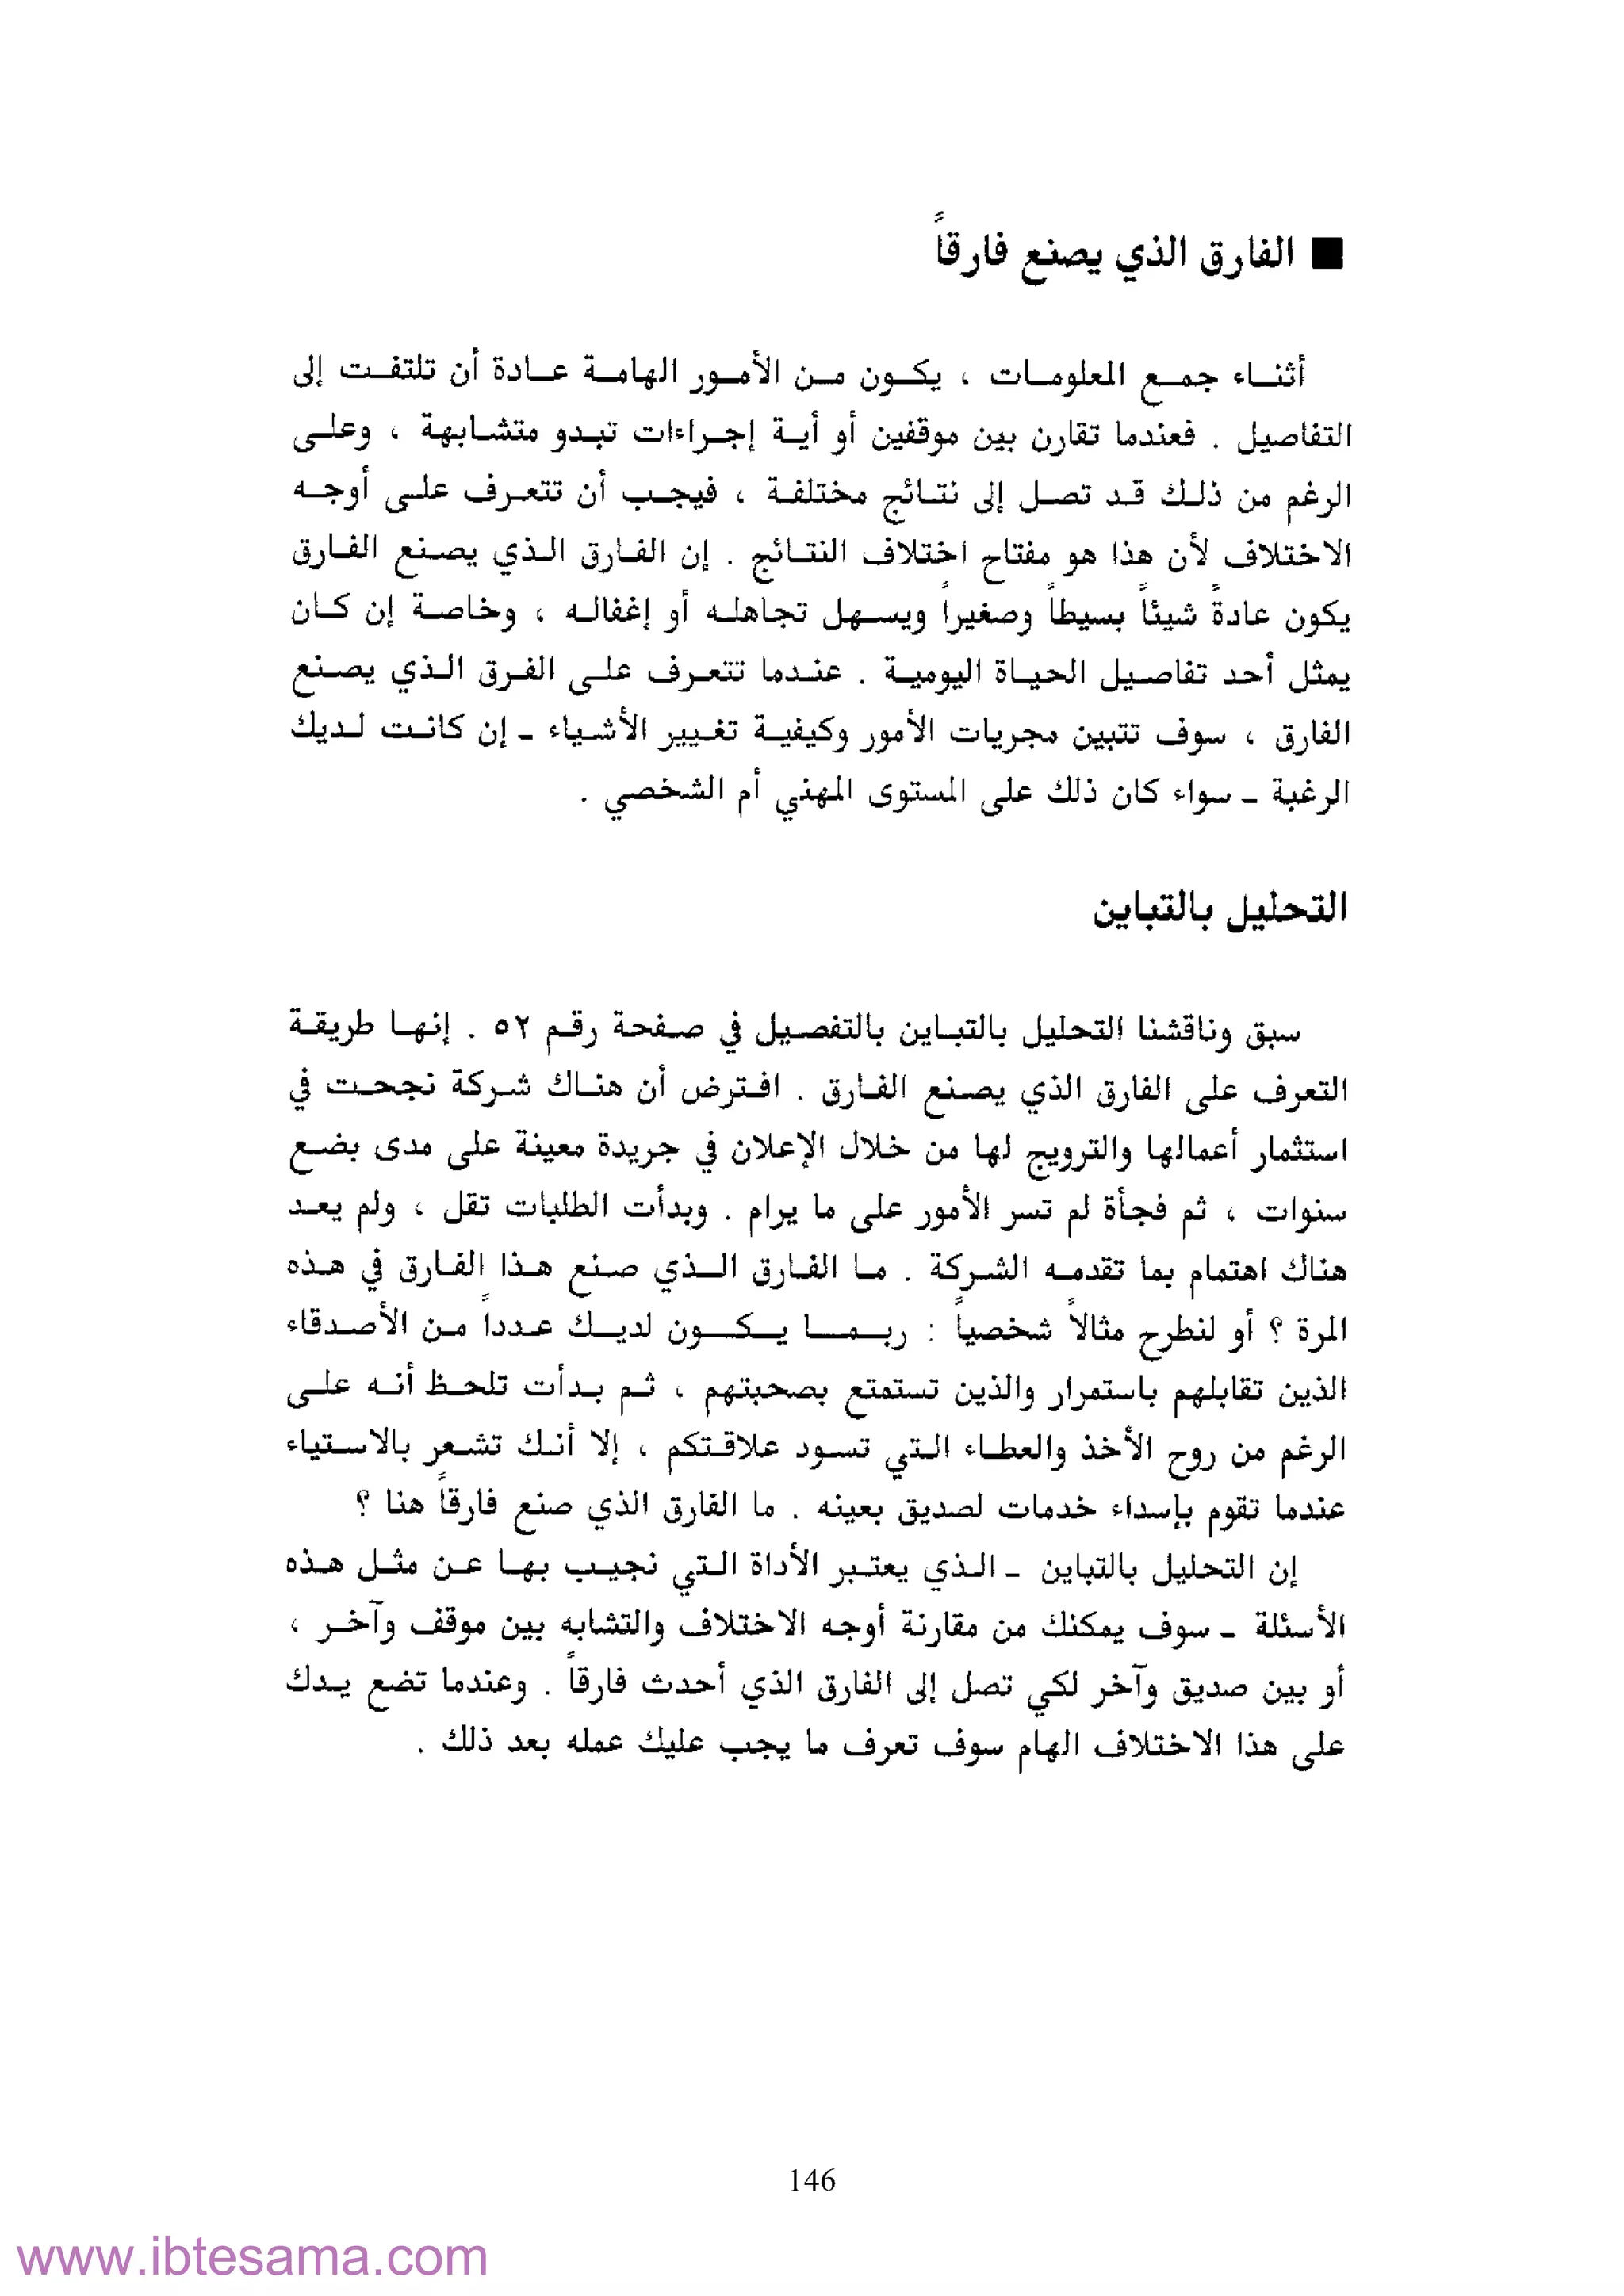 ■ الفارق الذي يصنع فارقاً
أثناء جمع المعلومات ، يكون من الأمور الهامة عادة أن تلتفت إلى
التفاصيل . فعندما تقارن بين موقفين أو أية إجراءات تبدو متشابهة ، وعلى
الرغم من ذلك قد تصل إلى نتائج مختلفة ، فيجب أن تتعرف على أوجه
الاختلاف لأن هذا هو مفتاح اختلاف النتائج . إن الفارق الذي يصنع الفارق
يكون عادةً شيئاً بسيطاً وصغيراً ويسهل تجاهله أو إغفاله ، وخاصة إن كان
يمثل أحد تفاصيل الحياة اليومية . عندما تتعرف على الفرق الذي يصنع
الفارق ، سوف تتبين مجريات الأمور وكيفية تغيير الأشياء - إن كانت لديك
الرغبة - سواء كان ذلك على المستوى المهني أم الشخصي .
التحليل بالتباين
سبق وناقشنا التحليل بالتباين بالتفصيل في صفحة رقم ٥٢ . إنها طريقة
التعرف على الفارق الذي يصنع الفارق . افترض أن هناك شركة نجحت في
استثمار أعمالها والترويج لها من خلال الإعلان في جريدة معينة على مدى بضع
سنوات ، ثم فجأة لم تسر الأمور على ما يرام . وبدأت الطلبات تقل ، ولم يعد
هناك اهتمام بما تقدمه الشركة . ما الفارق الذي صنع هذا الفارق في هذه
المرة ؟ أو لنطرح مثالاً شخصياً : ربما يكون لديك عدداً من الأصدقاء
الذين تقابلهم باستمرار والذين تستمتع بصحبتهم ، ثم بدأت تلحظ أنه على
الرغم من روح الأخذ والعطاء التي تسود علاقتكم ، إلا أنك تشعر بالاستياء
عندما تقوم بإسداء خدمات لصديق بعينه . ما الفارق الذي صنع فارقاً هنا ؟
إن التحليل بالتباين - الذي يعتبر الأداة التي نجيب بها عن مثل هذه
الأسئلة - سوف يمكنك من مقارنة أوجه الاختلاف والتشابه بين موقف وآخر ،
أو بين صديق وآخر لكي تصل إلى الفارق الذي أحدث فارقاً . وعندما تضع يدك
على هذا الاختلاف الهام سوف تعرف ما يجب عليك عمله بعد ذلك .
146
www.ibtesama.com